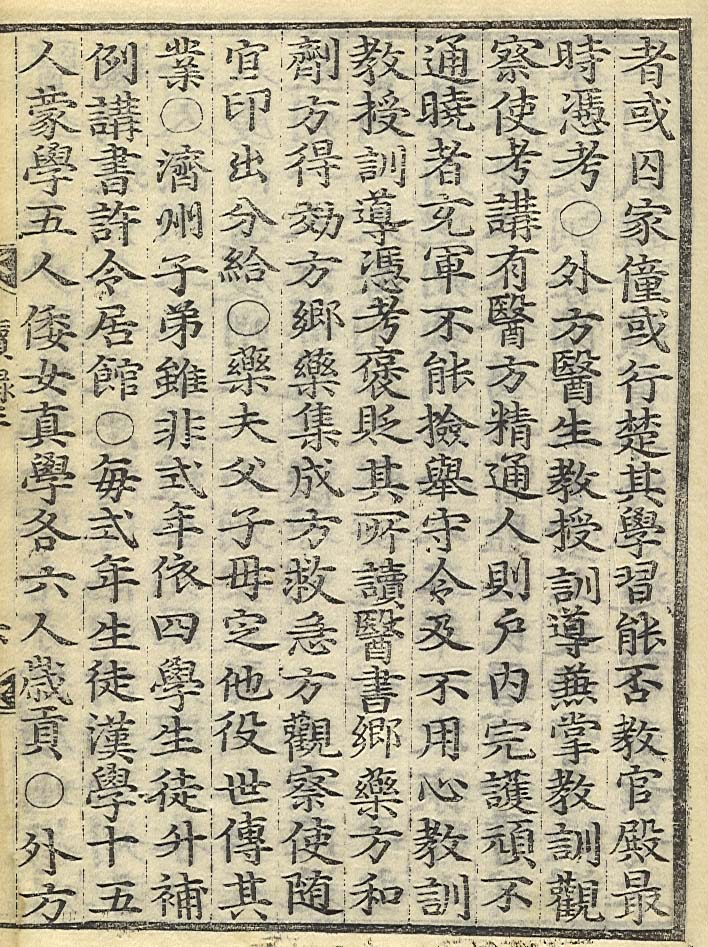 者或囚家僮或行楚其學習能否教官殿最
時憑考○外方醫生教授訓導兼掌教訓觀
察使考講有醫方精通人則戶内完護頑不
通曉者充軍不能撿舉守令及不用心教訓
教授訓導憑考褒貶其所讀醫書鄉藥方和
劑方得効方鄉藥集成方救急方觀察使随
宜印出分給○藥夫父子毋定他役世傳其
業○濟州子弟雖非式年依四學生徒升補
例講書許令居館○每式年生徒漢學十五
人蒙學五人倭女真學各六人歲貢○外方